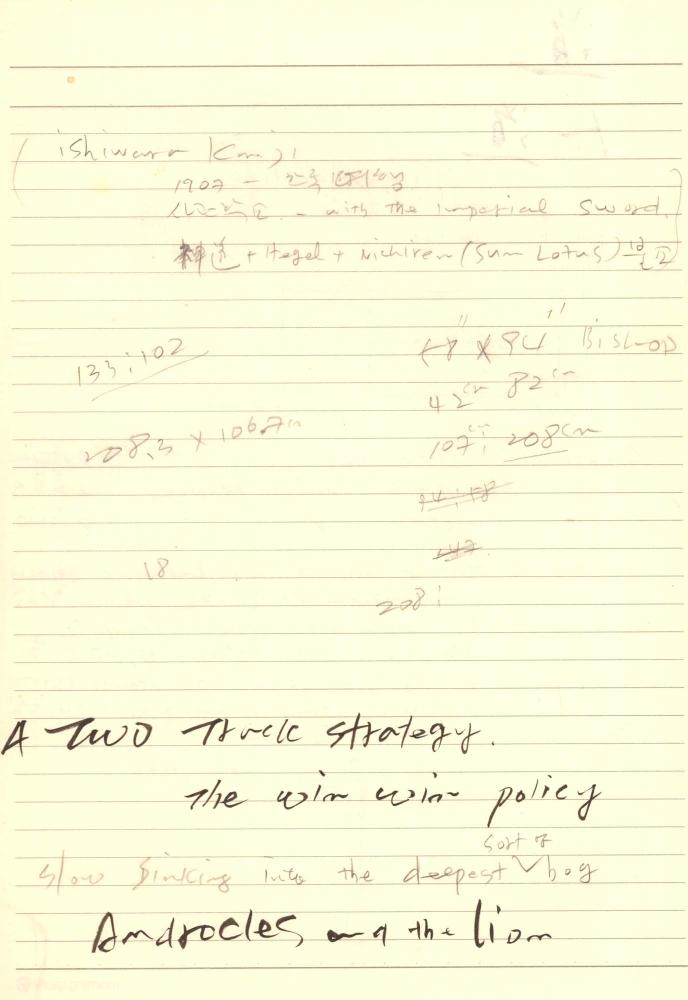 Ishiwara Kanji
1907 -
- with the imperial sword.
神道 + Hegel + Nichiren (Sun Lotus) 불교
133:102
48" x 94" Bishop
42cm 82cm
208.3 x 106.7cm
107cm: 208cm
94:48
18
208:
A Two Track strategy.
The win win policy
sort of
Slow Sinking into the deepest bog
Androcles and the lion